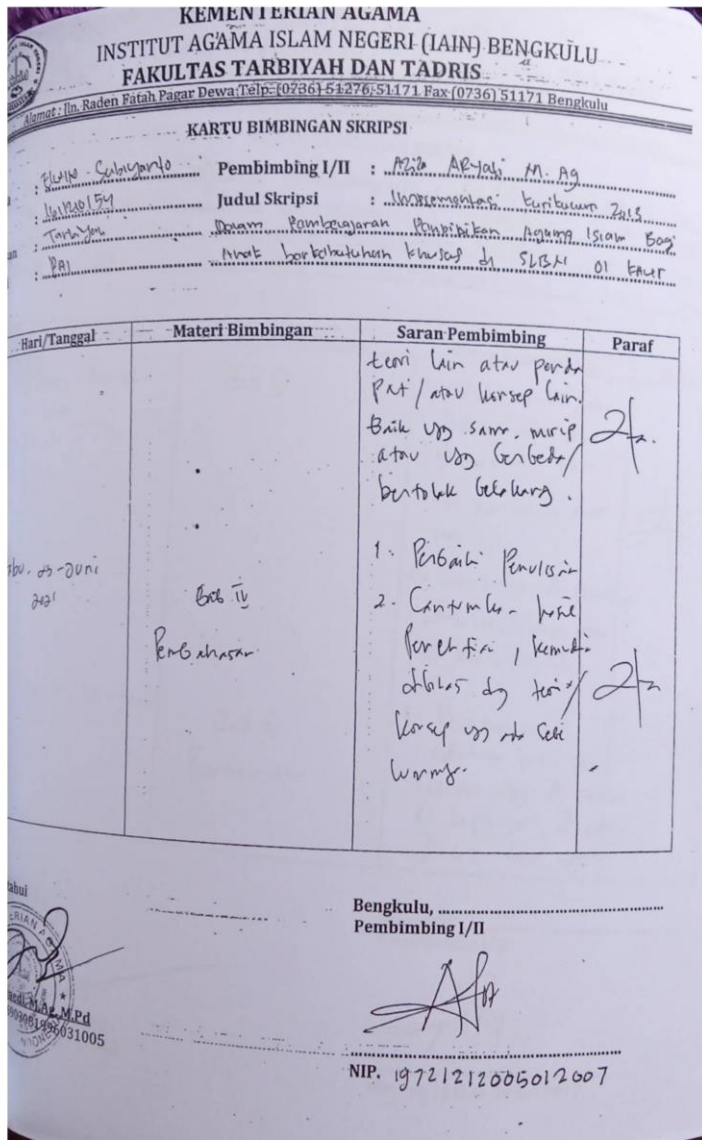 KEMENTERIAN AGAMA
INSTITUT AGAMA ISLAM NEGERI (IAIN) BENGKULU
FAKULTAS TARBIYAH DAN TADRIS
Alamat : Jln. Raden Fatah Pagar Dewa Telp. (0736) 51276, 51171 Fax (0736) 51171 Bengkulu
KARTU BIMBINGAN SKRIPSI
: Subiyanto Pembimbing I/II : Aziza Aryati M. Ag
: Judul Skripsi : Implementasi Kurikulum 2013
: Tarbiyah Dalam Pembelajaran Pendidikan Agama Islam Bagi
: PAI Anak berkebutuhan khusus di SLBN 01 Kaur
Hari/Tanggal Materi Bimbingan Saran Pembimbing Paraf
teori lain atau penda
pat / atau konsep lain.
Baik yg sama, mirip
atau yg berbeda/
bertolak belakang.
1. Perbaiki Penulisan
2021 Bab IV 2. Cantumkan hasil
Pembahasan Penelitian, kemudian
dibahas dg teori/
konsep yg ada sebe
lumnya.
Bengkulu,
Pembimbing I/II
M.Ag, M.Pd
NIP. 197212122005012007